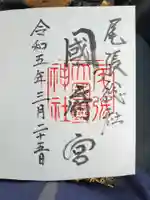 尾張総社
國府宮
令和五年三月二十五日